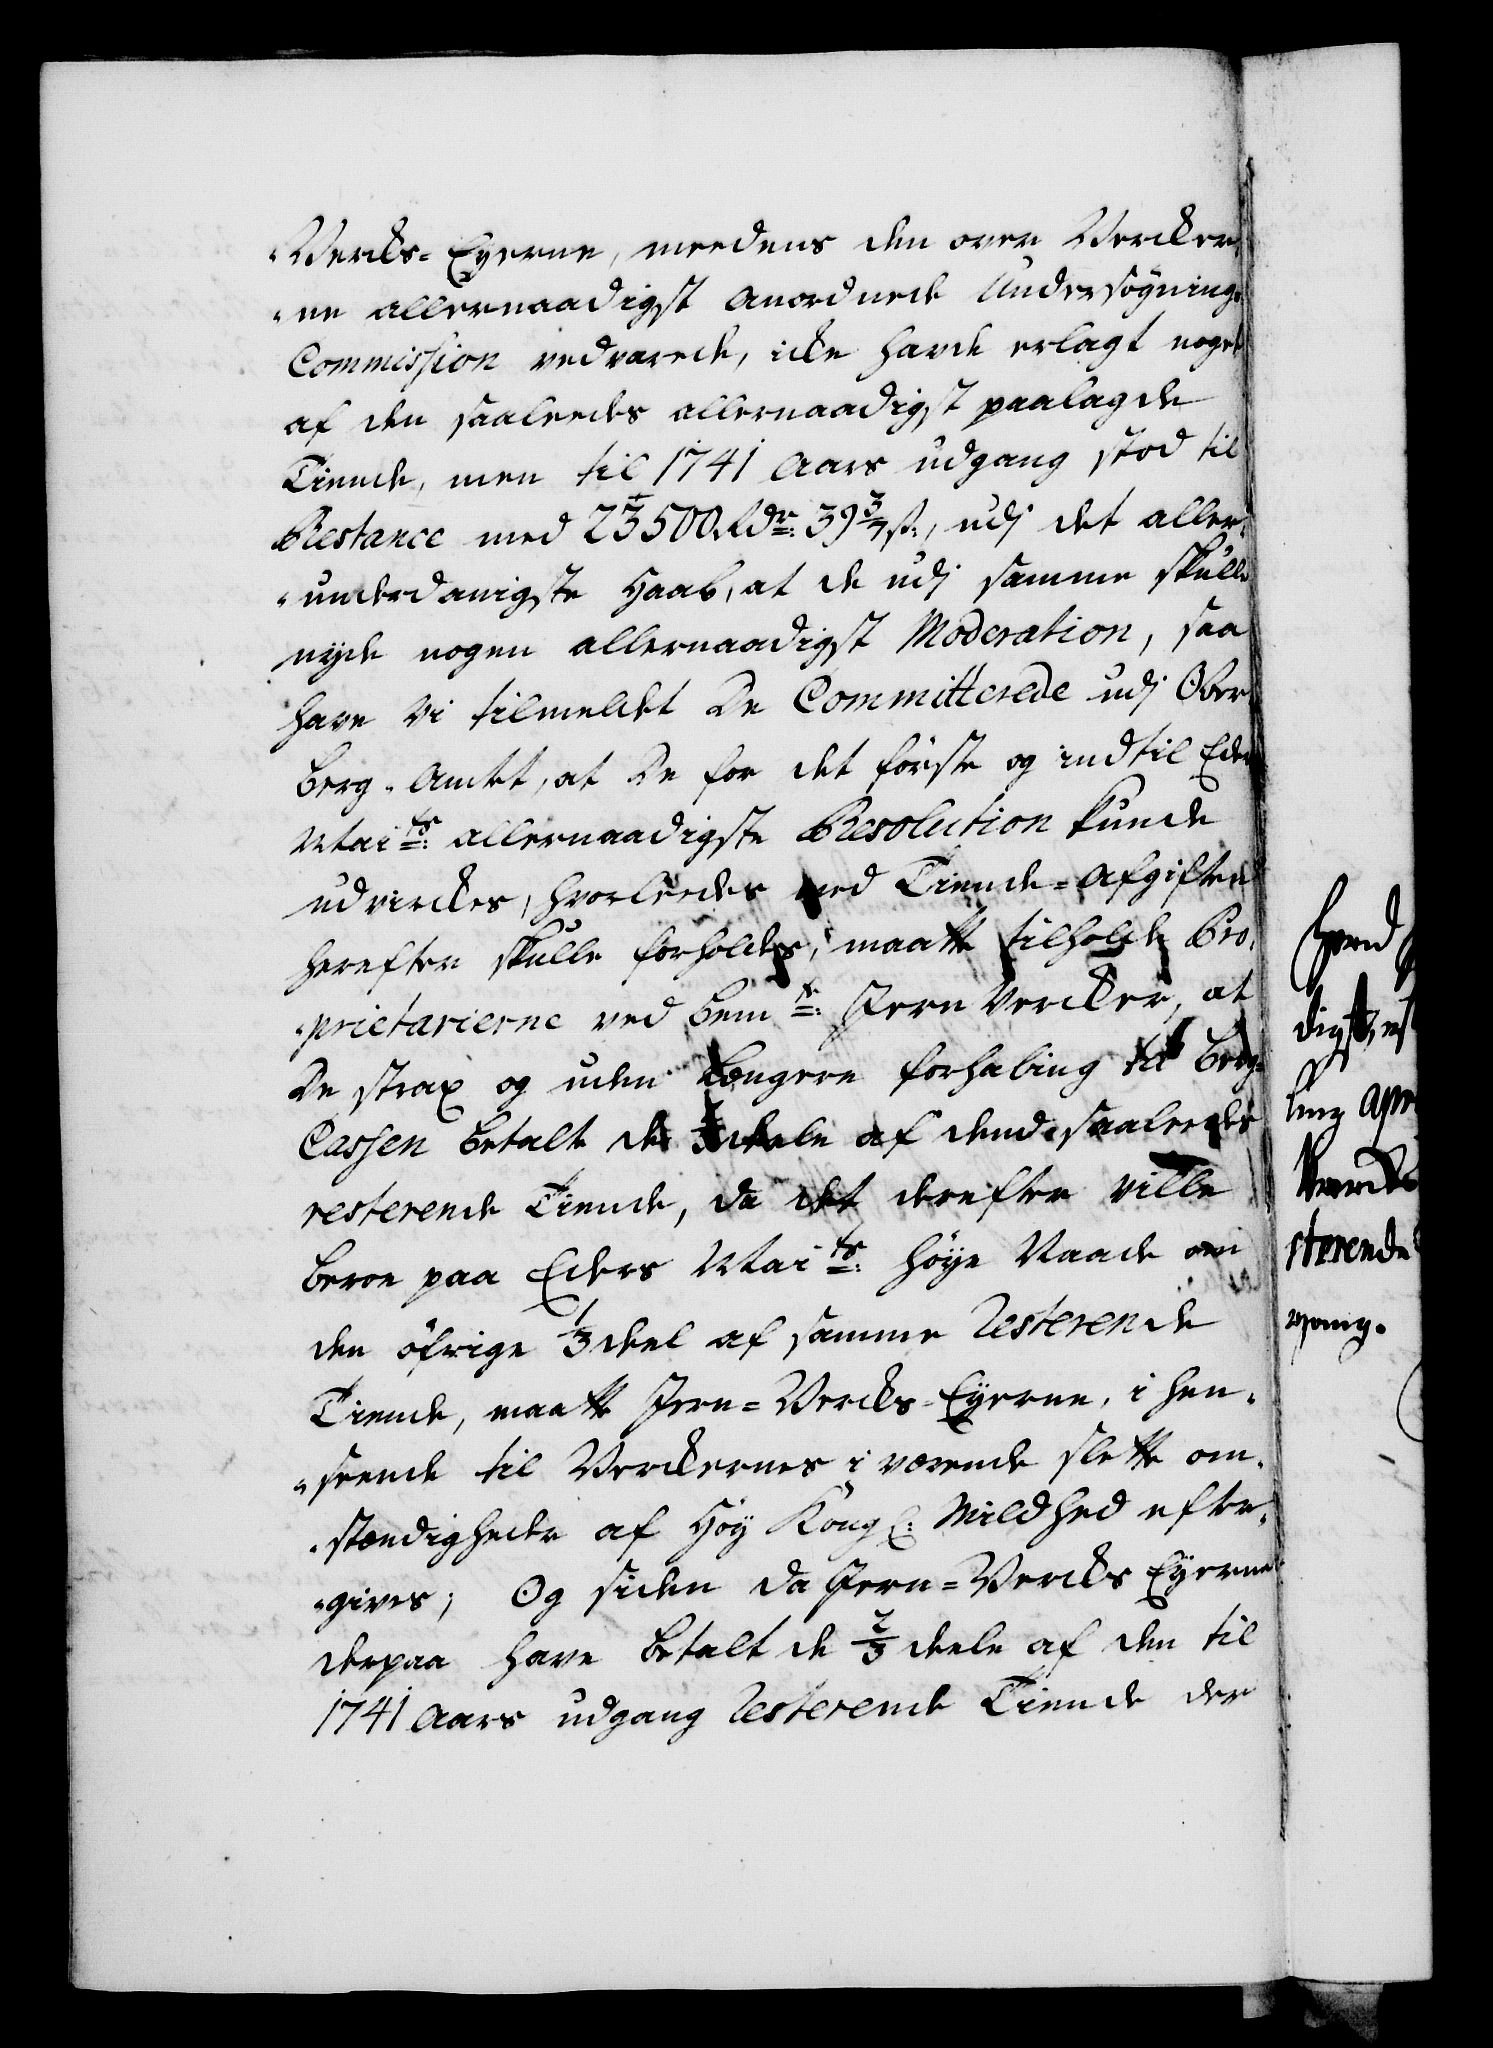 "Vercks-Eyerne, meedens den over Vercker,
"ne allernaadigst anordnede Undersögnings
Commission vedvarede, icke havde erlagt noget
af den saaleedes allernaadigst paalagde
Tiende, men til 1741 Aars udgang stod til
Restance med 23500 Rdr: 39 3/4 ß:, udj det aller,
"underdanigste Haab, at de udj samme skulle
nyde nogen allernaadigst Moderation, saa
have Vi tilmeldet De Committerede udj Ober
berg-Amtet, at De for det förste og indtil Eders
Maits: allernaadigste Resolution kunde
udvirckes, hvorleedes med Tiende=Afgiften
herefter skulle forholdes, maatte tilholde Pro,
"prietarierne ved bemte: Jern Vercker, at
De strax og uden længere forhaling til Berg
Cassen betalte de 2/3 deele af dend saaleedes
resterende Tiende, da det derefter ville
beroe paa Eders Maits: höye Naade om
den öfrige 1/3 deel af samme Resterende
Tiende, maatte Jern=Vercks-Eyerne, i hen,
"seende til Verckernes i værende slette om,
"stændigheder af Höy Kongl: Mildhed efter,
"gives; Og siden da Jern=Vercks Eyerne
derpaa have betalt de 2/3 deele af den til
1741 Aars udgang Resterende Tiende der
digst,
sterende